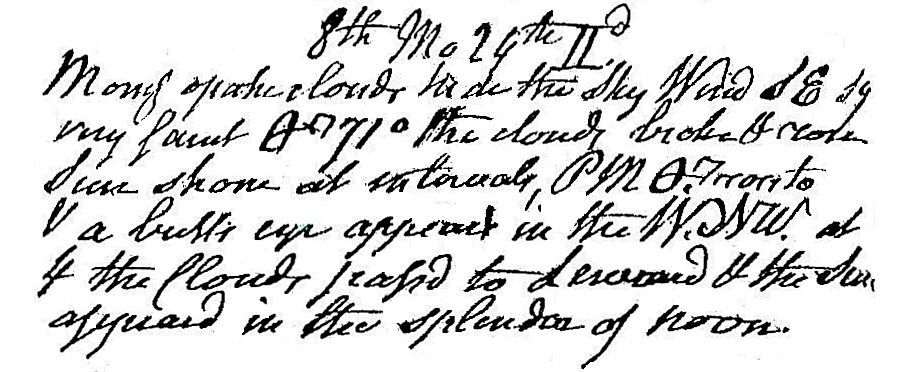 8th Mo 24th II.d
Morng opake clouds hide the Sky Wind SE by
very faint 71° The clouds broke & rose
Sun shone at intervals, PM
V a bulls eye appeard in the W.NW. at
4 the Clouds pass'd to Leeward & the Sun
appeard in the splendor of noon.